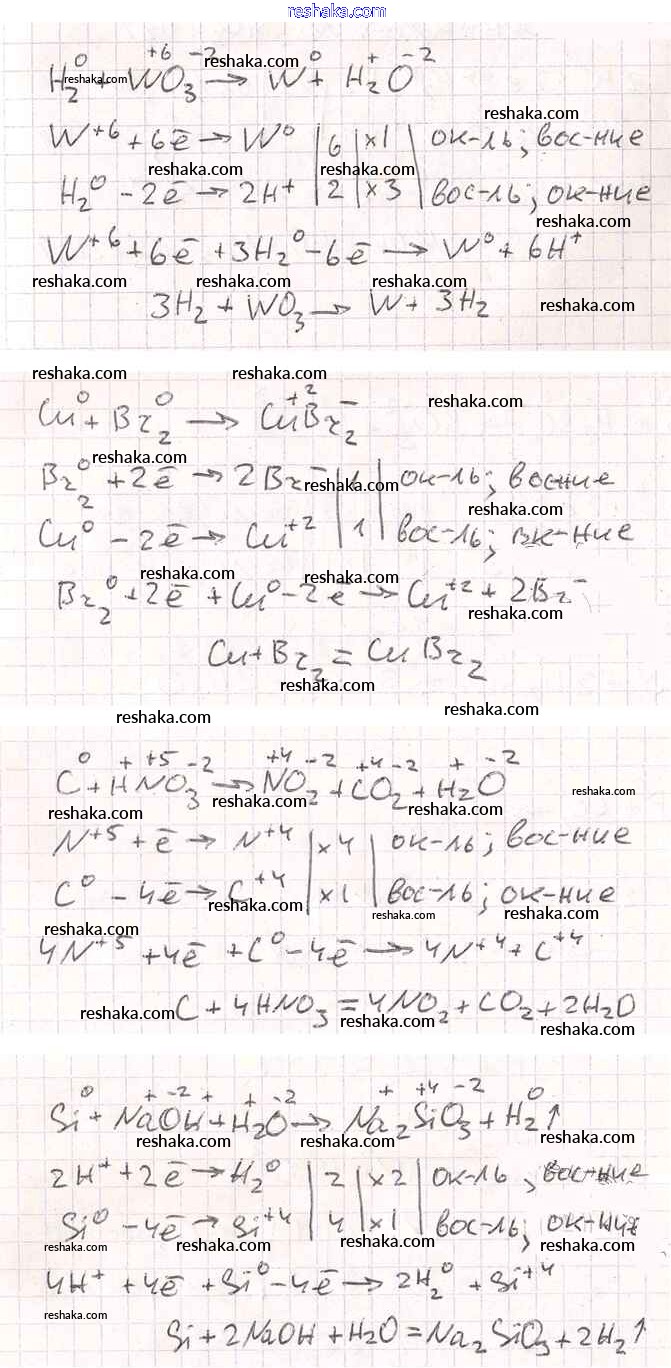 reshaka.com
H₂⁰ + W⁺⁶O₃⁻² → W⁰ + H₂⁺O⁻²
reshaka.com reshaka.com
reshaka.com
W⁺⁶ + 6ē → W⁰ | 6 | ×1 | ок-ль; вос-ние
reshaka.com reshaka.com
H₂⁰ - 2ē → 2H⁺ | 2 | ×3 | вос-ль; ок-ние
reshaka.com
W⁺⁶ + 6ē + 3H₂⁰ - 6ē → W⁰ + 6H⁺
reshaka.com reshaka.com reshaka.com
3H₂ + WO₃ → W + 3H₂
reshaka.com
reshaka.com reshaka.com
Cu⁰ + Br₂⁰ → Cu⁺²Br₂⁻
reshaka.com
reshaka.com
Br₂⁰ + 2ē → 2Br⁻ | 1 | ок-ль; вос-ние
reshaka.com
reshaka.com
Cu⁰ - 2ē → Cu⁺² | 1 | вос-ль; ок-ние
reshaka.com reshaka.com
Br₂⁰ + 2ē + Cu⁰ - 2ē → Cu⁺² + 2Br⁻
reshaka.com
Cu + Br₂ = CuBr₂
reshaka.com
reshaka.com reshaka.com
C⁰ + H⁺N⁺⁵O₃⁻² → N⁺⁴O₂⁻² + C⁺⁴O₂⁻² + H₂⁺O⁻²
reshaka.com
reshaka.com reshaka.com reshaka.com
N⁺⁵ + ē → N⁺⁴ | ×4 | ок-ль; вос-ние
reshaka.com
C⁰ - 4ē → C⁺⁴ | ×1 | вос-ль; ок-ние
reshaka.com reshaka.com reshaka.com
4N⁺⁵ + 4ē + C⁰ - 4ē → 4N⁺⁴ + C⁺⁴
reshaka.com C + 4HNO₃ = 4NO₂ + CO₂ + 2H₂O
reshaka.com reshaka.com
Si⁰ + Na⁺O⁻²H⁺ + H₂⁺O⁻² → Na₂⁺Si⁺⁴O₃⁻² + H₂⁰↑
reshaka.com reshaka.com reshaka.com
2H⁺ + 2ē → H₂⁰ | 2 | ×2 | ок-ль, вос-ние
reshaka.com reshaka.com
Si⁰ - 4ē → Si⁺⁴ | 4 | ×1 | вос-ль; ок-ние
reshaka.com reshaka.com reshaka.com
4H⁺ + 4ē + Si⁰ - 4ē → 2H₂⁰ + Si⁺⁴
reshaka.com
Si + 2NaOH + H₂O = Na₂SiO₃ + 2H₂↑
reshaka.com reshaka.com